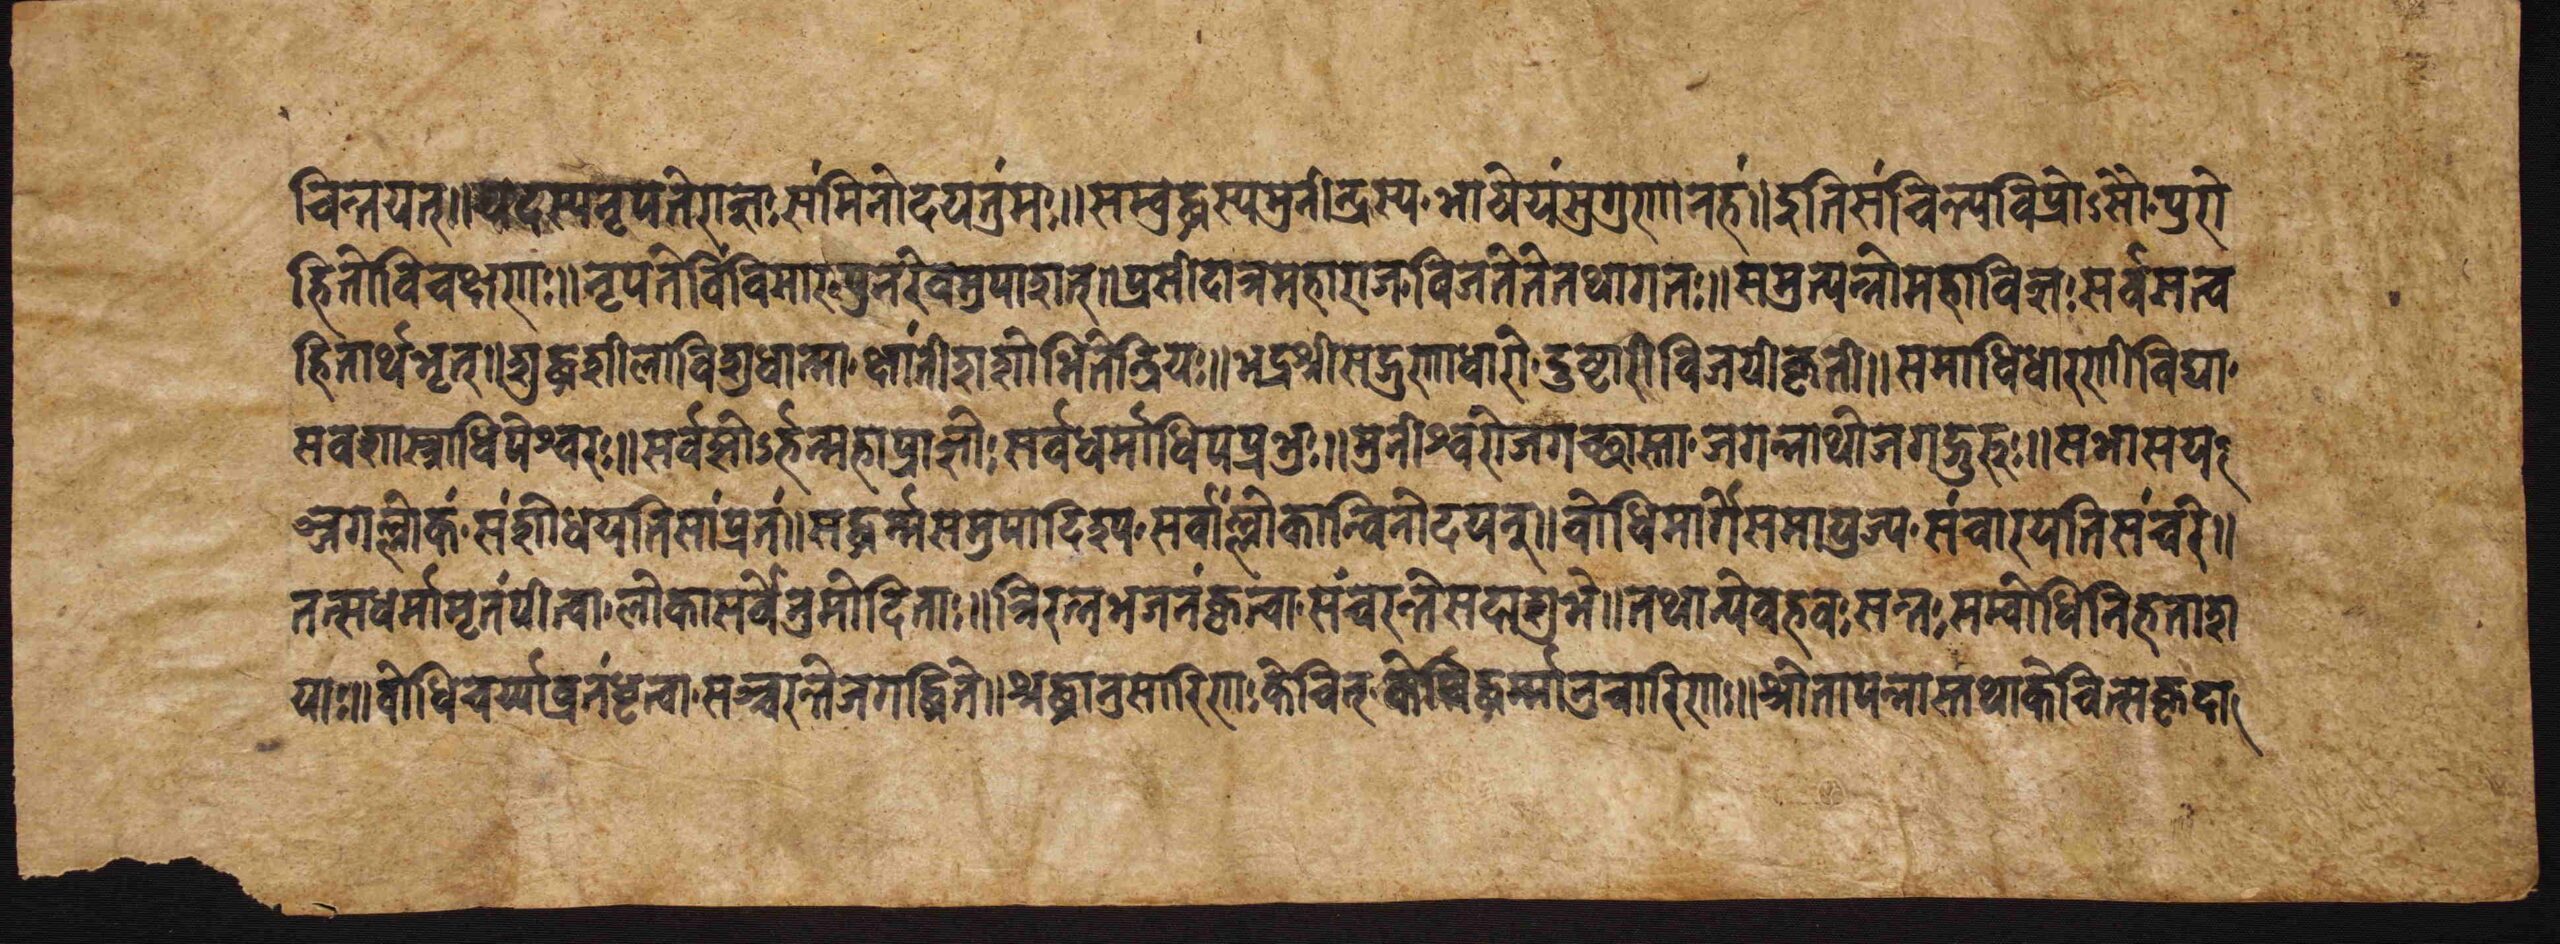 चिन्तयत्॥यदस्यनृपतेराज्ञः,संमिनोदयतुंमः॥सम्बुद्धस्यमुनीन्द्रस्य,भाषेयंसुगुणानहं॥इतिसंचिन्त्यविप्रोऽसौ,पुरो
हितोविचक्षणः॥नृपतेर्विंविसारं,पुनरेवमुपादाशत्॥प्रसीदात्रमहाराज,विजतेतेतथागतः॥समुत्पन्नोमहाविज्ञः,सर्वसत्व
हितार्थभृत्॥शुद्धशीलाविशुधात्मा,क्षांतीशशोभितेन्द्रियः॥भद्रश्रीसद्गुणाधारी,दुष्टारीविजयीकृती॥समाधिधारणीविद्या,
सवशास्त्राधिपेश्वरः॥सर्वज्ञोऽर्हन्महाप्राज्ञोः,सर्वधर्माधिपप्रभुः॥मुनीश्वरोजगच्छास्ता,जगन्नाथोजगद्गुरुः॥सभासय
ञ्जगल्लोकं,संशोधयतिसांप्रतं॥सद्धर्म्मसमुपादिश्य,सर्वांल्लोकान्विनोदयन्॥बोधिमार्गेसमायुज्य,संचारयतिसंवरे॥
तत्सधर्मामृतंपीत्वा,लोकासर्वेनुमोदिताः॥त्रिरत्नभजनंकृत्वा,संचरन्तेसदाशुभे॥तथान्येवहवःसन्तः,सम्बोधिनिहताश
याः॥बोधिचर्य्याव्रतंधृत्वा,सञ्चरन्तेजगद्धिते॥श्रद्धानुसारिणःकेचित्,केचिद्धर्म्मानुचारिणः॥श्रोतापन्नास्तथाकेचित्सकृदा